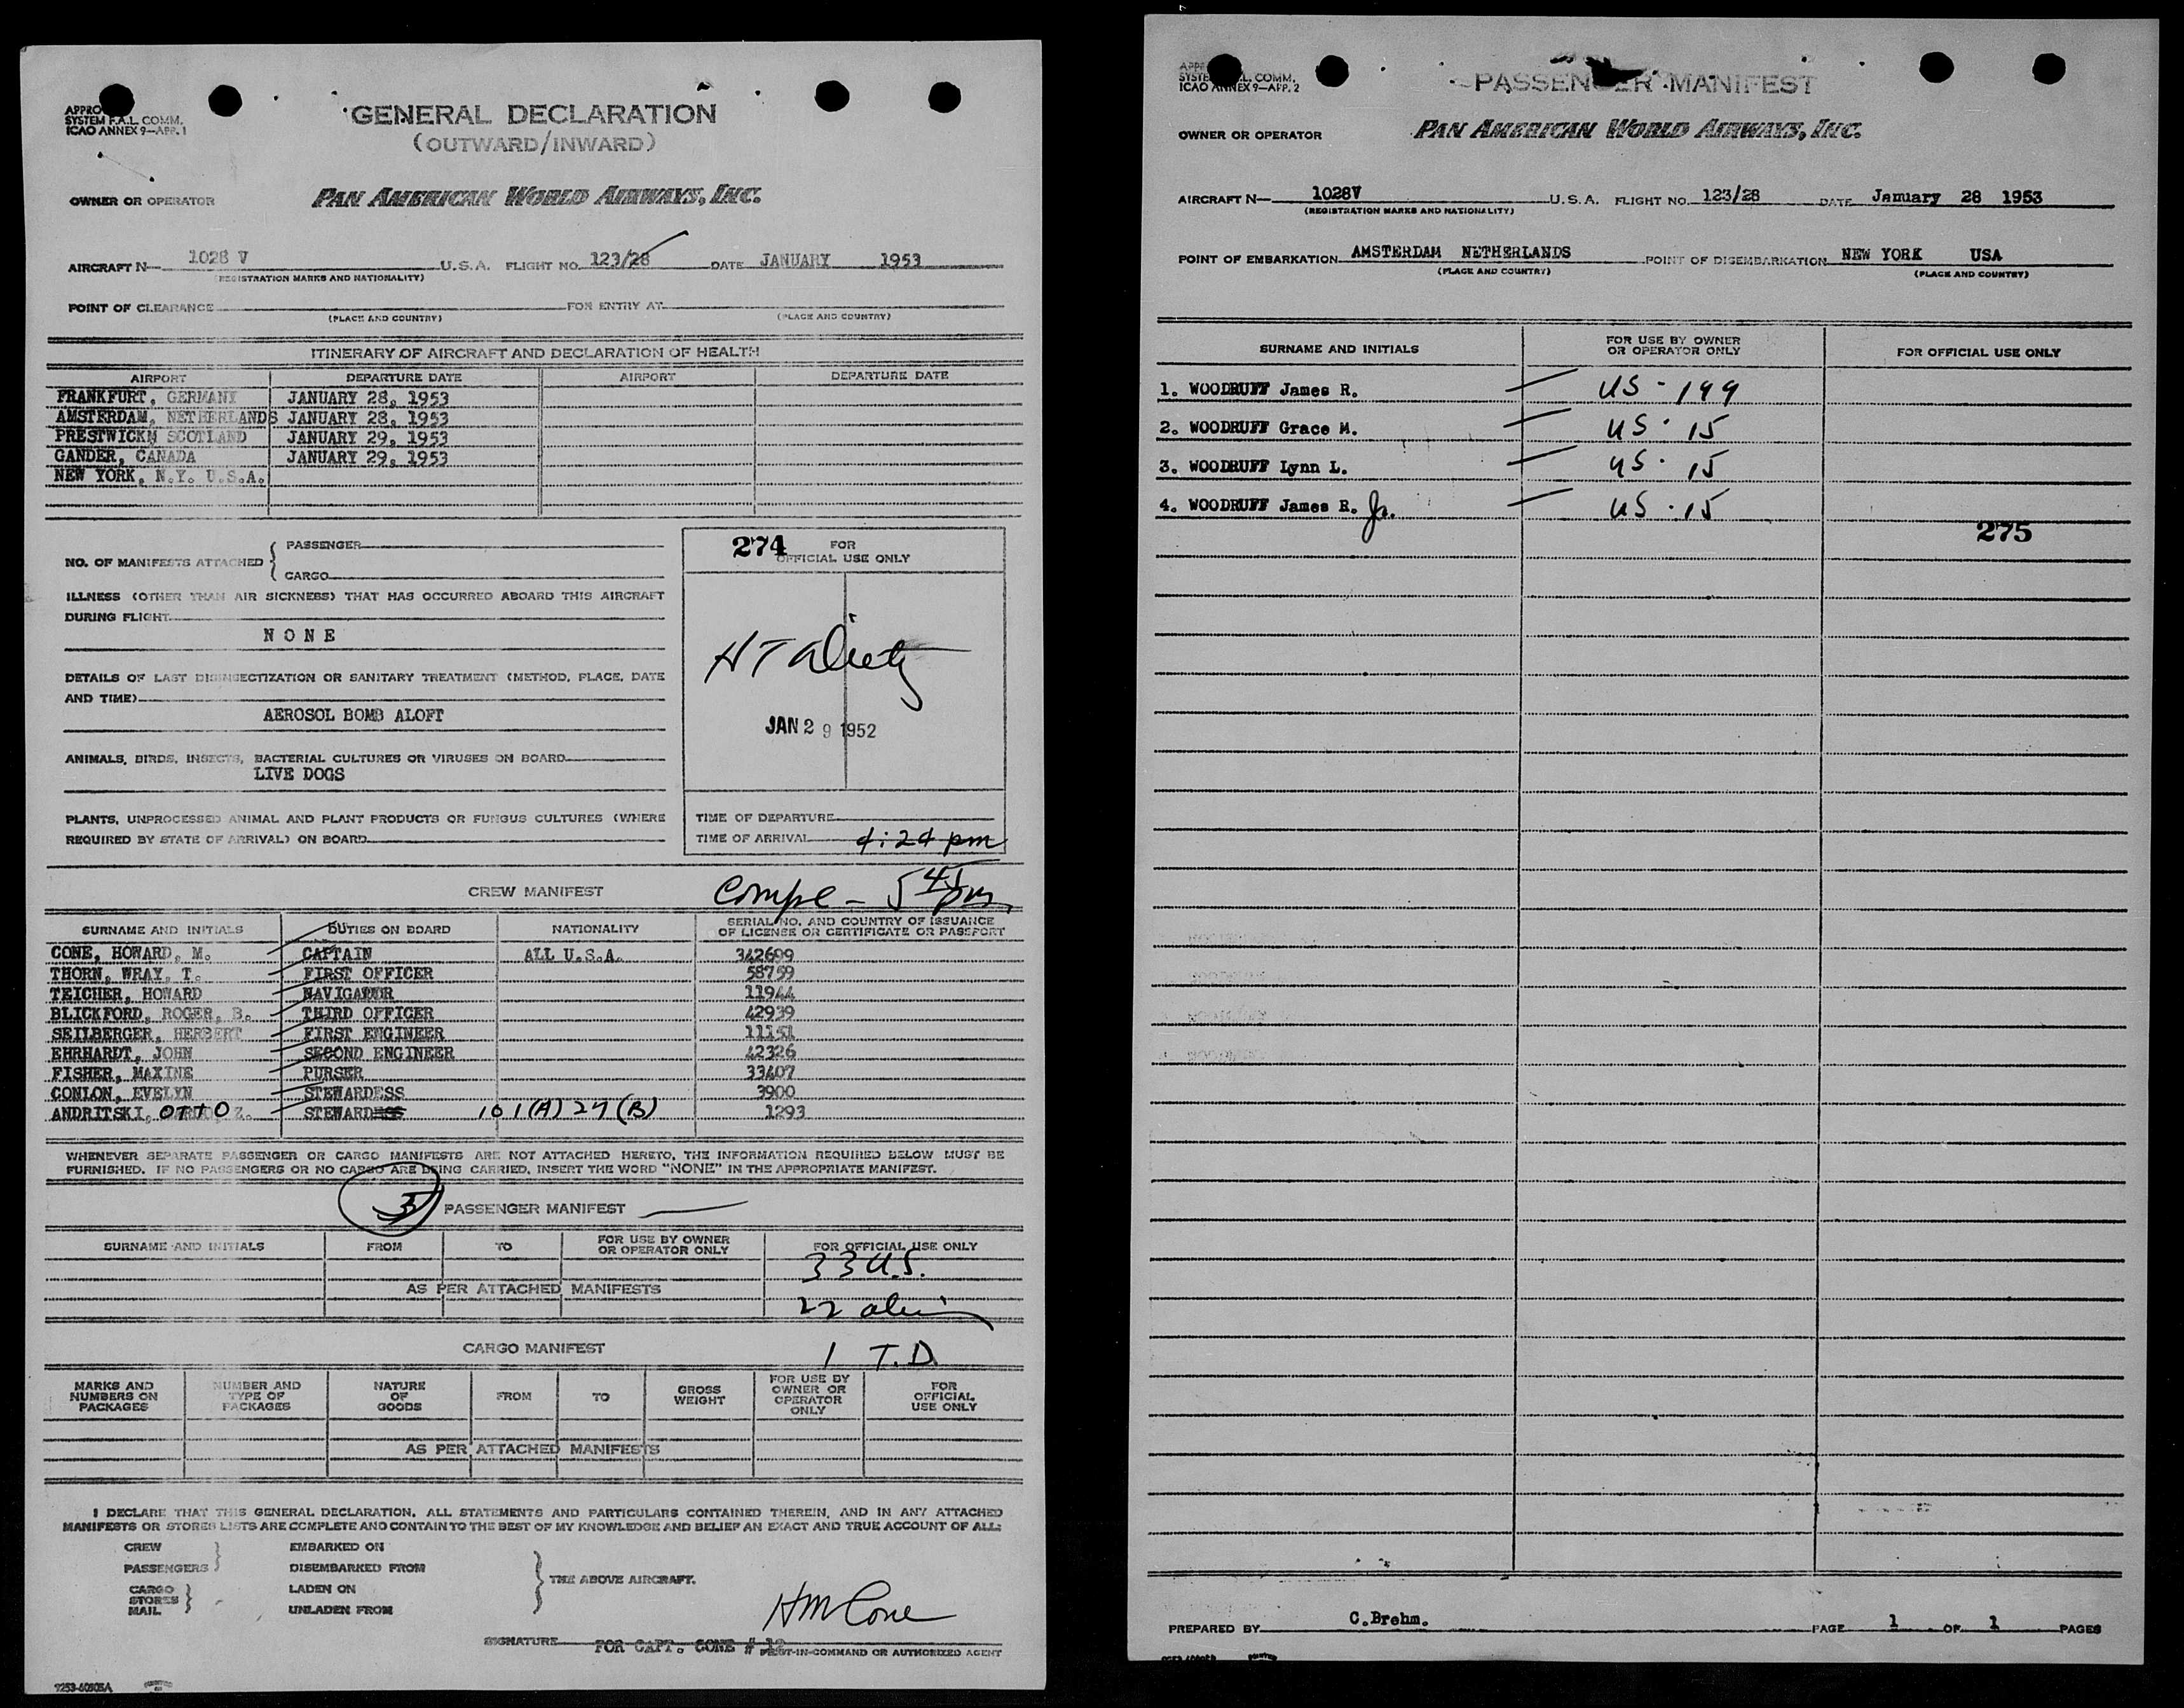 APPRO
SYSTEM F.A.L. COMM.
ICAO ANNEX 9—APP. 1
GENERAL DECLARATION
(OUTWARD/INWARD)
OWNER OR OPERATOR PAN AMERICAN WORLD AIRWAYS, INC.
AIRCRAFT N— 1028 V U.S.A. FLIGHT NO. 123/28 DATE JANUARY 1953
(REGISTRATION MARKS AND NATIONALITY)
POINT OF CLEARANCE FOR ENTRY AT
(PLACE AND COUNTRY) (PLACE AND COUNTRY)
ITINERARY OF AIRCRAFT AND DECLARATION OF HEALTH
AIRPORT DEPARTURE DATE AIRPORT DEPARTURE DATE
FRANKFURT, GERMANY JANUARY 28, 1953
AMSTERDAM, NETHERLANDS JANUARY 28, 1953
PRESTWICKN SCOTLAND JANUARY 29, 1953
GANDER, CANADA JANUARY 29, 1953
NEW YORK, N.Y. U.S.A.
NO. OF MANIFESTS ATTACHED { PASSENGER
CARGO
274 FOR
OFFICIAL USE ONLY
ILLNESS (OTHER THAN AIR SICKNESS) THAT HAS OCCURRED ABOARD THIS AIRCRAFT
DURING FLIGHT
N O N E
DETAILS OF LAST DISINSECTIZATION OR SANITARY TREATMENT (METHOD, PLACE, DATE
AND TIME)
AEROSOL BOMB ALOFT
JAN 29 1952
ANIMALS, BIRDS, INSECTS, BACTERIAL CULTURES OR VIRUSES ON BOARD
LIVE DOGS
PLANTS, UNPROCESSED ANIMAL AND PLANT PRODUCTS OR FUNGUS CULTURES (WHERE
REQUIRED BY STATE OF ARRIVAL) ON BOARD
TIME OF DEPARTURE
TIME OF ARRIVAL 4:24 pm
CREW MANIFEST Compl - 5 45 pm
SURNAME AND INITIALS DUTIES ON BOARD NATIONALITY SERIAL NO. AND COUNTRY OF ISSUANCE
OF LICENSE OR CERTIFICATE OR PASSPORT
CONE, HOWARD, M. CAPTAIN ALL U.S.A. 342699
THORN, WRAY, T. FIRST OFFICER 58759
TEICHER, HOWARD NAVIGATOR 11944
BLICKFORD, ROGER, B. THIRD OFFICER 42939
SEILBERGER, HERBERT FIRST ENGINEER 11151
EHRHARDT, JOHN SECOND ENGINEER 42326
FISHER, MAXINE PURSER 33407
CONLON, EVELYN STEWARDESS 3900
ANDRITSKI, OTTO Z. STEWARD 101(A) 27(B) 1293
WHENEVER SEPARATE PASSENGER OR CARGO MANIFESTS ARE NOT ATTACHED HERETO, THE INFORMATION REQUIRED BELOW MUST BE
FURNISHED. IF NO PASSENGERS OR NO CARGO ARE BEING CARRIED, INSERT THE WORD "NONE" IN THE APPROPRIATE MANIFEST.
PASSENGER MANIFEST
SURNAME AND INITIALS FROM TO FOR USE BY OWNER
OR OPERATOR ONLY FOR OFFICIAL USE ONLY
33 U.S.
AS PER ATTACHED MANIFESTS
22 alien
CARGO MANIFEST 1 T.D.
MARKS AND
NUMBERS ON
PACKAGES NUMBER AND
TYPE OF
PACKAGES NATURE
OF
GOODS FROM TO GROSS
WEIGHT FOR USE BY
OWNER OR
OPERATOR
ONLY FOR
OFFICIAL
USE ONLY
AS PER ATTACHED MANIFESTS
I DECLARE THAT THIS GENERAL DECLARATION, ALL STATEMENTS AND PARTICULARS CONTAINED THEREIN, AND IN ANY ATTACHED
MANIFESTS OR STORES LISTS ARE COMPLETE AND CONTAIN TO THE BEST OF MY KNOWLEDGE AND BELIEF AN EXACT AND TRUE ACCOUNT OF ALL:
CREW EMBARKED ON
PASSENGERS DISEMBARKED FROM
THE ABOVE AIRCRAFT.
CARGO LADEN ON
STORES
MAIL UNLADEN FROM
HM Cone
SIGNATURE FOR CAPT. CONE # 12
PILOT-IN-COMMAND OR AUTHORIZED AGENT
9253-60305A
SYSTE L. COMM.
ICAO ANNEX 9—APP. 2
PASSENGER MANIFEST
OWNER OR OPERATOR PAN AMERICAN WORLD AIRWAYS, INC.
AIRCRAFT N— 1028V U.S.A. FLIGHT NO. 123/28 DATE January 28 1953
(REGISTRATION MARKS AND NATIONALITY)
POINT OF EMBARKATION AMSTERDAM NETHERLANDS POINT OF DISEMBARKATION NEW YORK USA
(PLACE AND COUNTRY) (PLACE AND COUNTRY)
SURNAME AND INITIALS FOR USE BY OWNER
OR OPERATOR ONLY FOR OFFICIAL USE ONLY
1. WOODRUFF James R. US - 199
2. WOODRUFF Grace M. US - 15
3. WOODRUFF Lynn L. US - 15
4. WOODRUFF James R. Jr. US - 15
275
PREPARED BY C.Brehm. PAGE 1 OF 1 PAGES